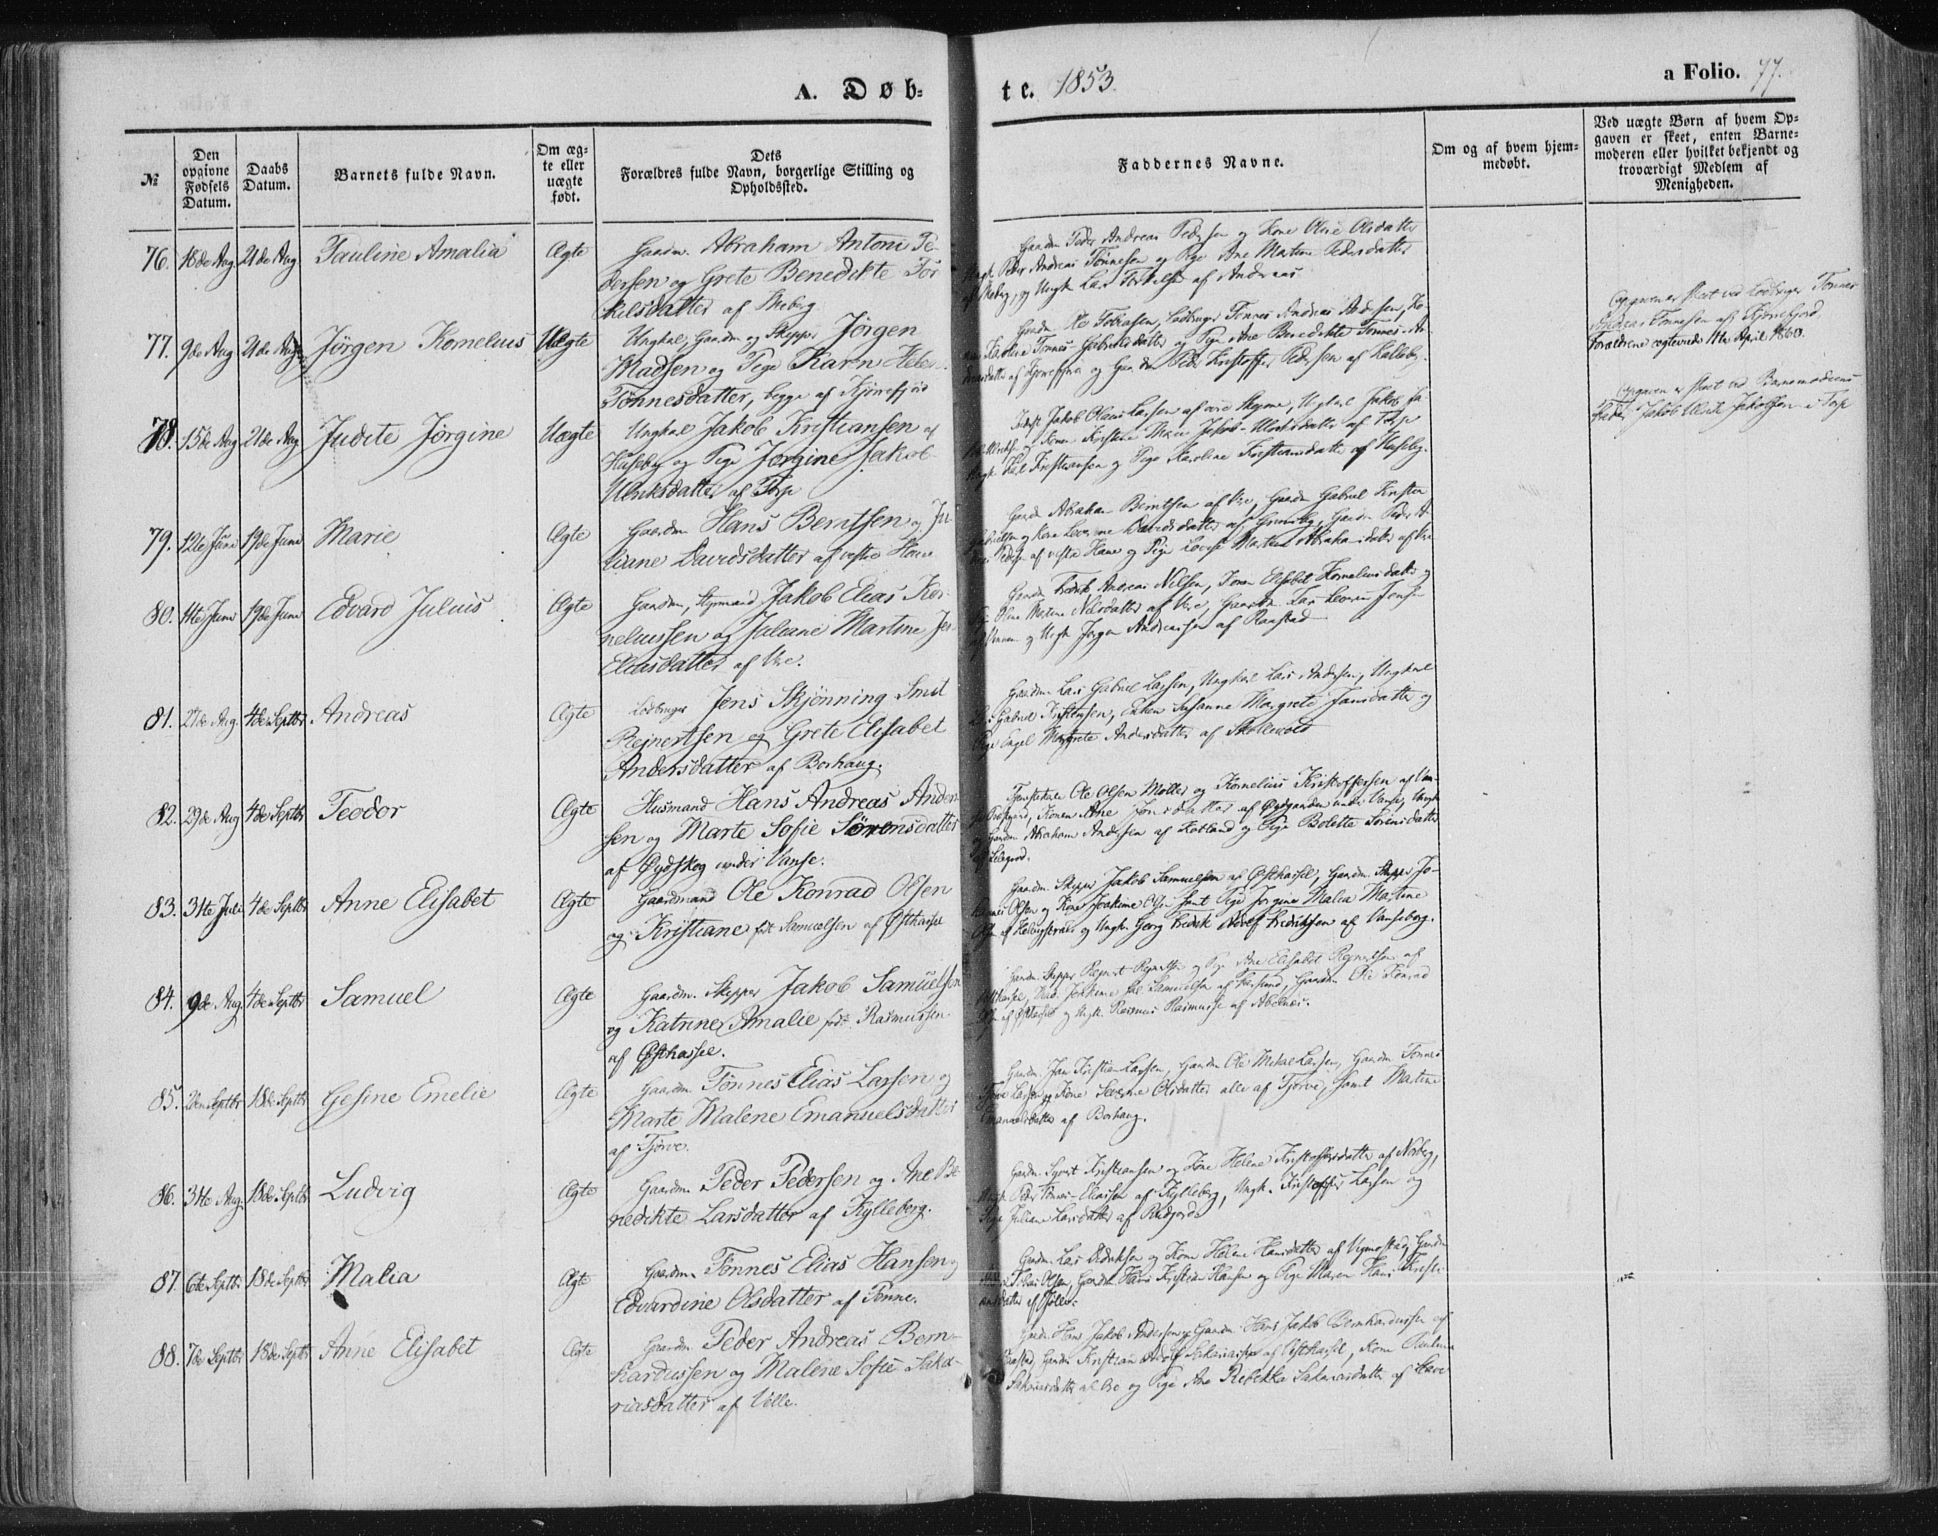 A. Døb-
te. 1853.
a Folio. 77.
№
Den opgivne Fødsels Datum.
Daabs Datum.
Barnets fulde Navn.
Om æg-
te eller
uægte
født.
Dets
Forældres fulde Navn, borgerlige Stilling og
Opholdssted.
Faddernes Navne.
Om og af hvem hjem-
medøbt.
Ved uægte Børn af hvem Op-
gaven er skeet, enten Barne-
moderen eller hvilket bekjendt og
troværdigt Medlem af
Menigheden.
76. 18de Aug 21de Aug Pauline Amalia Ægte Gaardm. Abraham Antoni Pe-
dersen og Grete Benedikte Tor
kelsdatter af Meberg
Gaardm Peder Andreas Pedersen og Kone Olene Olsdatter
Peder Andreas Tönnesen og Pige Ane Martine Pedersdatter
af Meberg, og Ungk. Lars Torkelsen af Andreas
77. 9de Aug 21de Aug Jörgen Kornelius Uægte Ungkal, Gaardm og Skipper Jörgen
Madsen og Pige Karn Hele-
Tönnesdatter, begge af Kjörrefjord
Gaardm Ole Tobiasen, Lodbruger Tönnes Andreas Andersen, Ko-
Karoline Tönnes-Gabrielsdatter og Pige Ane Benedikte Tönnes-An-
dreasdatter af Kjörrefjord og Gaardm Peder Kristoffer Pedersen af Kalleberg.
Opgaven er skeet ved Lodbruger Tönnes
Andreas Tönnesen af Kjörrefjord
Forældrene ægteviede 11te April 1860.
78. 15de Aug 21de Aug Judite Jörgine Uægte Ungkal Jakob Kristiansen af
Huseby og Pige Jörgine Jakob-
Ulriksdatter af Torp
Jakob Olaus Larsen af
Kone Kristine Marie Jakob-Ulriksdatter af Torp
Ungk. Karl Kristiansen og Pige Karoline Kristiansdatter af Huseby.
Opgaven er skeet ved Barnemoderens
Fader, Jakob Ulrik Jakobsen i Torp
79. 12te Juni 19de Juni Marie Ægte Gaardm Hans Berntsen og Ju-
liane Davidsdatter af vestre Hane
Gaardm Abraham Berntsen af Vre, Gaardm Gabriel Kristen
Gabrielsen og Kone Davidsdatter af Grimsby, Gaardm Peder A
Pedersen af vestre Hane og Pige Lovise Martine Abrahamsdatter af Vre
80. 14te Juni 19de Juni Edvard Julius Ægte Gaardm, Jakob Elias Kor-
neliussen og Juliane Martine Jes-
Eliasdatter af Vre.
Gaardm Fredrik Andreas Nilsen, Kone Elisabet Korneliusdatter og
Pige Olene Martine Nilsdatter af Vre, Gaardm Lars Jensen
og Ungk Jörgen Andreassen af Raastad
81. 27de Aug. 4de Septbr Andreas Ægte Lodbruger Jens Skjönning Smit
Reinertsen og Grete Elisabet
Andersdatter af Borhaug.
Gaardm Lars Gabriel Larsen, Ungkarl Lars Andersen, Ungkarl
Gabriel Kristensen, Enken Susanne Margrete Jansdatter og
Pige Engel Margrete Andersdatter af Skollevold
82. 29de Aug 4de Septbr Teodor Ægte Husmand Hans Andreas Ander-
sen og Marte Sofie Sörensdatter
af Øydskog under Vanse.
Tjenestekarl Ole Olsen Möller og Kornelius Kristoffersen af Van-
se Præstgaard, Konen Ane Jönsdatter af Øydgaarden under Vanse, Ungk
og Gaardm Abraham Andersen af Kotland og Pige Bolette Sörensdatter
83. 31te Juli 4de Septbr Anne Elisabet Ægte Gaardmand Ole Konrad Olsen
og Kristiane født Samuelsen af Østhassel
Gaardm Skipper Jakob Samuelsen af Østhassel, Gaardm Skipper To-
Olsen og Kone Joakime Olsen samt Pige Jörgine Malia Martine
og Ungk. Georg Fredrik Adolf Fredriksen af Vanseborg.
84. 9de Aug. 4de Septbr Samuel Ægte Gaardm. Skipper Jakob Samuelsen
og Katrine Amalie født Rasmussen
af Østhassel.
Gaardm. Skipper Reinert Reinertsen og Pige Ane Elisabet Reinertsen af
Østhassel, Mad. Joakime født Samuelsen af Farsund, Gaardm Ole Konrad
Olsen af Østhassel og Ungk. Rasmus Rasmussen af Abelnes.
85. 2den Septbr 18de Septbr Gesine Emelie Ægte Gaardm Tönnes Elias Larsen og
Marte Malene Emanuelsdatter
af Tjörve.
Gaardm Jan Kristian Larsen, Gaardm Ole Mikal Larsen, Gaardm Tönnes
Larsen og Kone Severine Olsdatter alle af Tjörve, samt Martine
Emanuelsdatter af Borhaug.
86. 31te Aug. 18de Septbr Ludvig Ægte Gaardm Peder Pedersen og Ane Be-
nedikte Larsdatter af Kylleberg.
Gaardm Syvert Kristiansen og Kone Helene Kristoffersdatter af Norberg,
Ungk. Peder Tönnes-Eliassen af Kylleberg, Ungk. Kristoffer Larsen og
Pige Juliane Larsdatter af Rødjord
87. 6te Septbr 18de Septbr Malia Ægte Gaardm. Tönnes Elias Hansen og
Edvardine Olsdatter af Tönne.
Gaardm Lars Didriksen og Kone Helene Hansdatter af Vigmostad, Gaardm
Tobias Olsen, Gaardm Hans Kristian Hansen og Pige Maren Hans Kristi-
ansdatter af
88. 7de Septbr 18de Septbr Anne Elisabet Ægte Gaardm Peder Andreas Bern-
hardussen og Malene Sofie Saka-
riasdatter af Velle.
Gaardm Hans Jakob Andersen og Gaardm Hans Jakob Bernhardussen af
Raastad, Gaardm Kristian Adolf Sakariassen af Østhassel, Kone Pauline
Sakariasdatter af Vre og Pige Ane Rebekka Sakariasdatter af